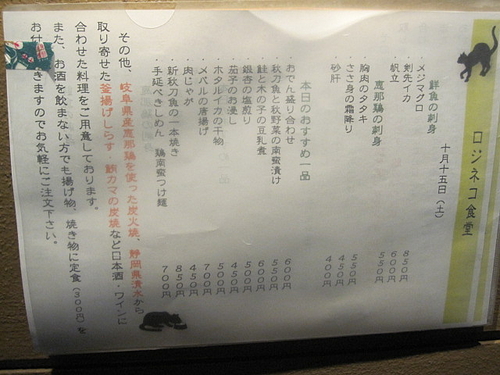 ロジネコ食堂
十月十五日(土)
鮮魚の刺身
・メジマグロ 850円
・剣先イカ 600円
・帆立 550円
恵那鶏の刺身
・胸肉のタタキ 550円
・ささ身の霜降り 450円
・砂肝 400円
本日のおすすめ一品
・おでん盛り合わせ 600円
・秋刀魚と秋野菜の南蛮漬け 550円
・鮭と木の子の豆乳煮 600円
・銀杏の塩煎り 500円
・茄子のお浸し 450円
・ホタルイカの干物 500円
・メバルの唐揚げ 700円
・肉じゃが 450円
・新秋刀魚の一本焼き 850円
・手延べきしめん 鶏南蛮つけ麺 700円
その他、岐阜県産恵那鶏を使った炭火焼、静岡県清水から
取り寄せた釜揚げしらす・鮪カマの炭焼など日本酒・ワインに
合わせた料理をご用意しております。
また、お酒を飲まない方でも揚げ物、焼き物に定食(300円)を
お付けできますのでお気軽にご注文下さい。